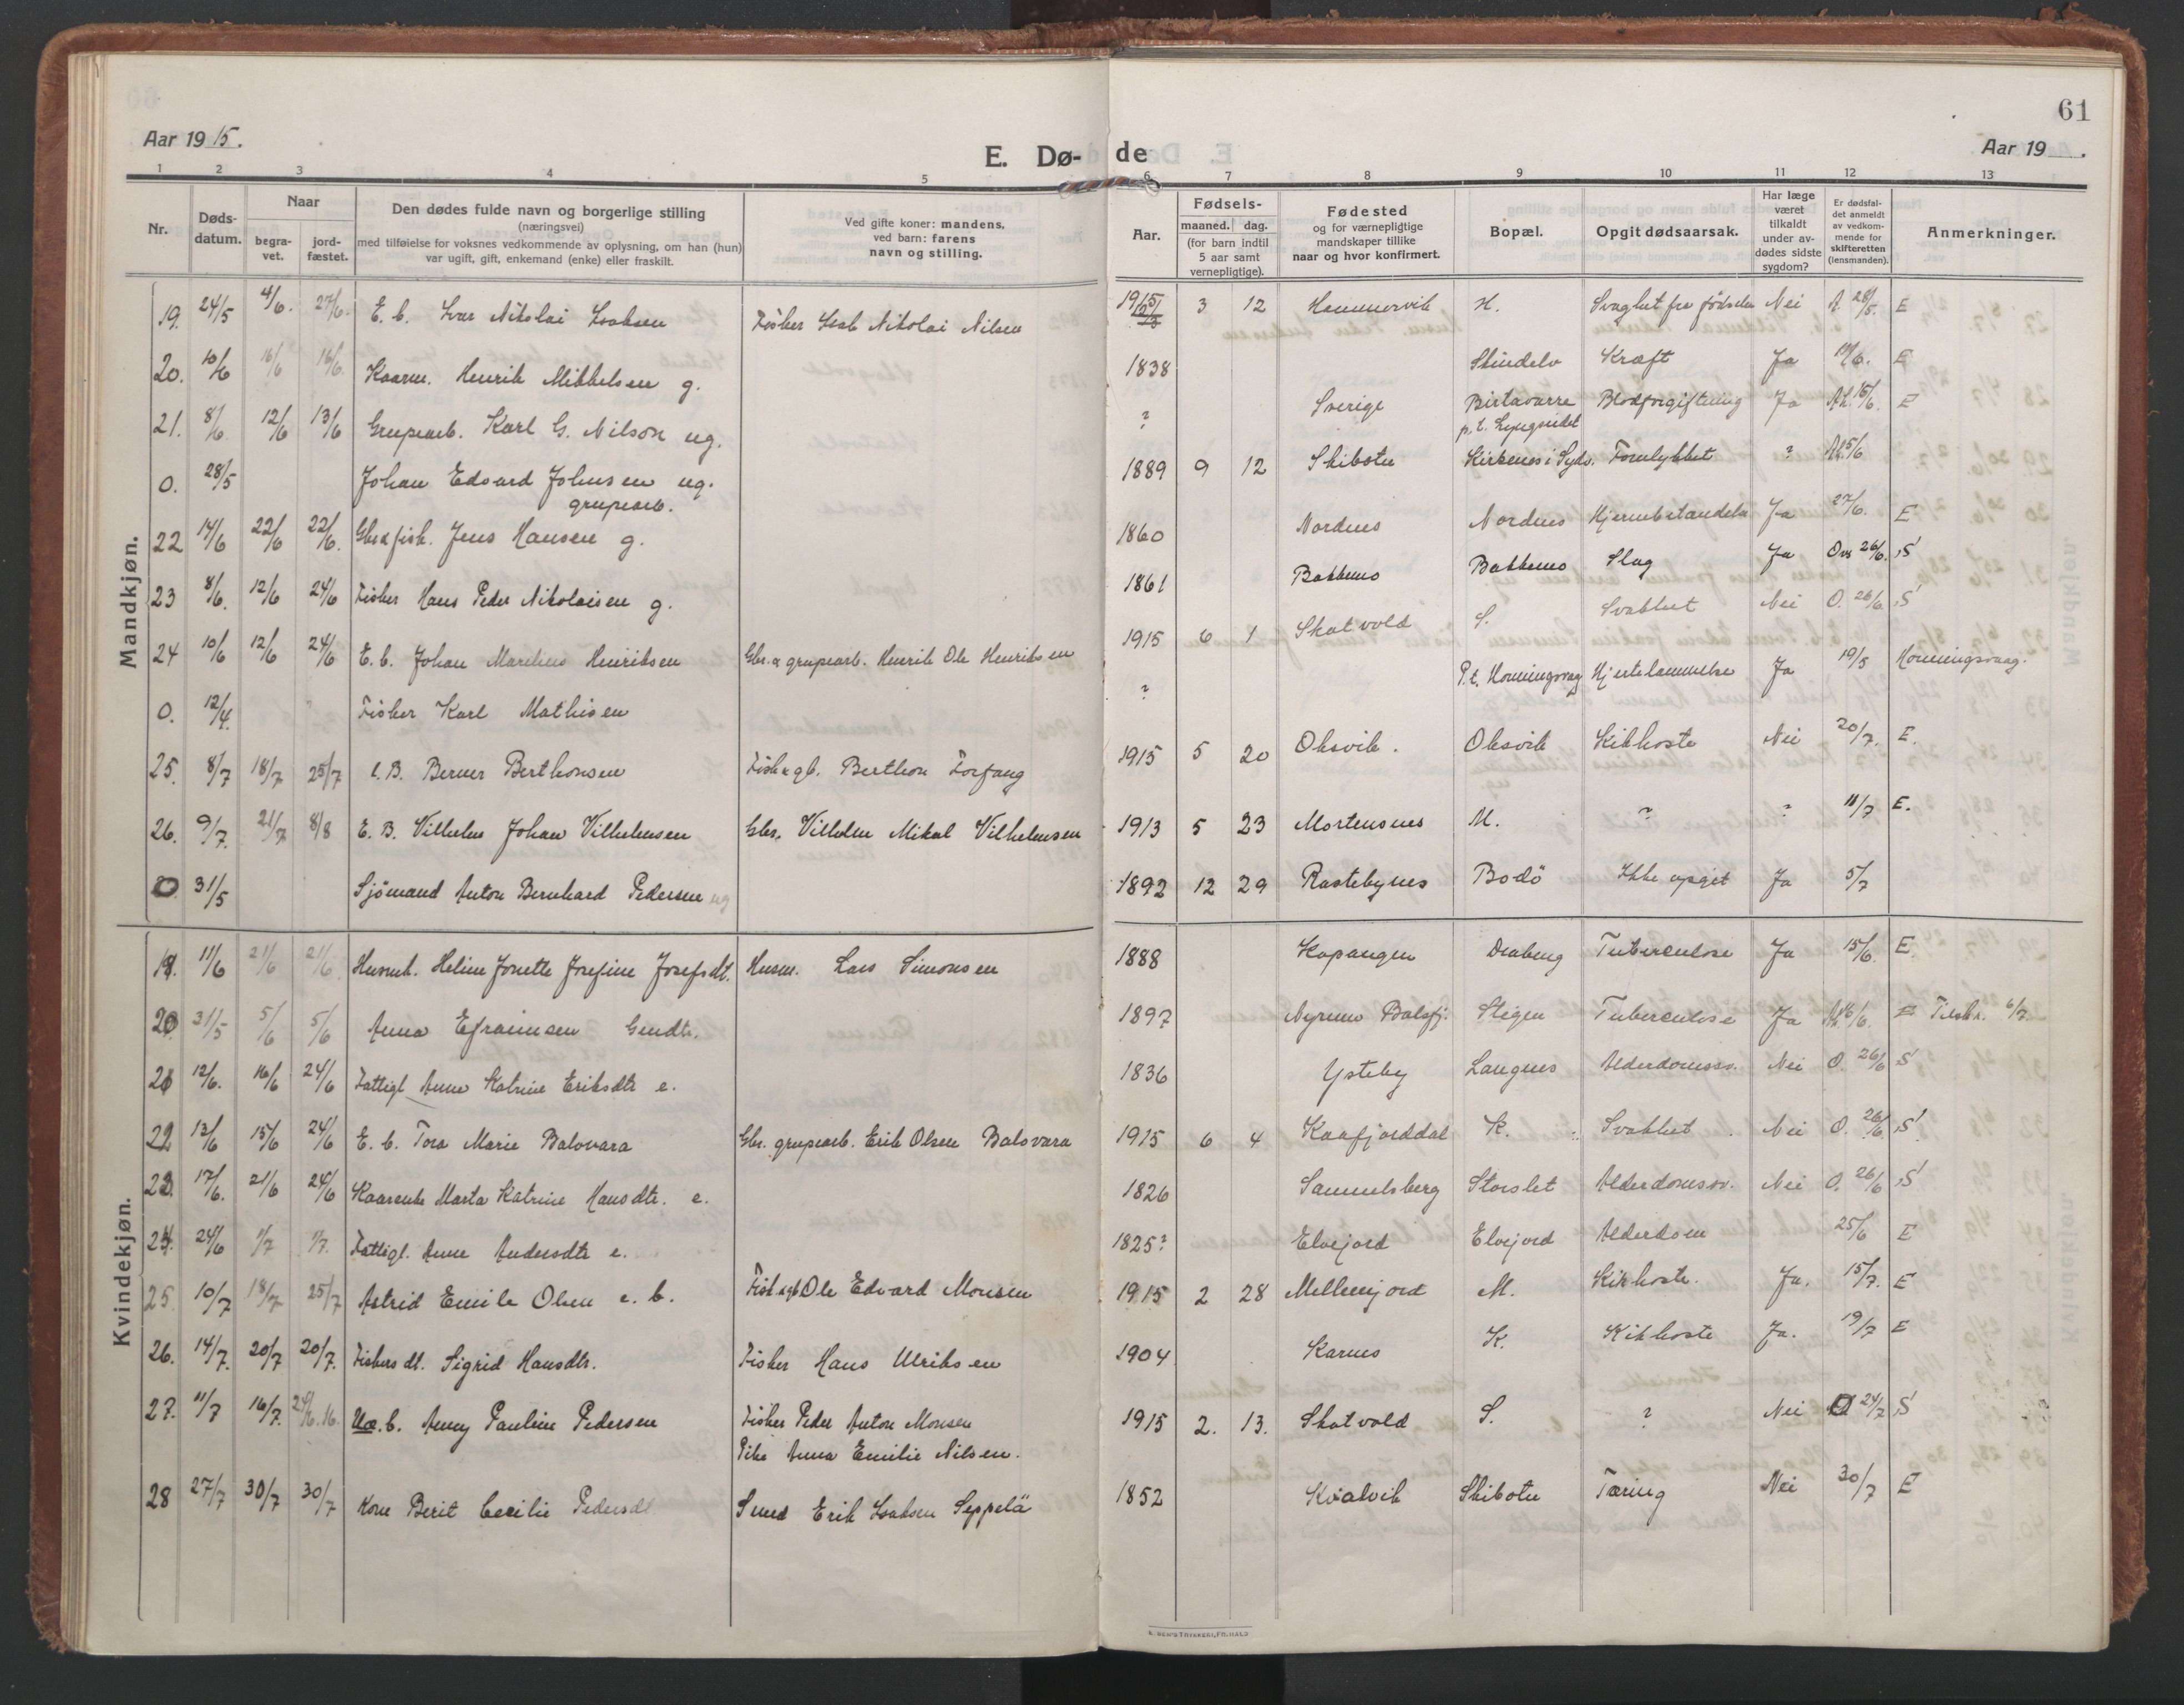 61
Aar 1915.
E. Dø-de
Aar 19 .
1 2 3 4 5 6 7 8 9 10 11 12 13
Nr.
Døds-datum.
Naar
begra-vet.
jord-fæstet.
Den dødes fulde navn og borgerlige stilling
(næringsvei)
med tilføielse for voksnes vedkommende av oplysning, om han (hun)
var ugift, gift, enkemand (enke) eller fraskilt.
Ved gifte koner: mandens,
ved barn: farens
navn og stilling.
Aar.
Fødsels-
maaned. dag.
(for barn indtil
5 aar samt
vernepligtige).
Fødested
og for værnepligtige
mandskaper tillike
naar og hvor konfirmert.
Bopæl.
Opgit dødsaarsak.
Har læge
været
tilkaldt
under av-
dødes sidste
sygdom?
Er dødsfal-
det anmeldt
av vedkom-
mende for
skifteretten
(lensmanden).
Anmerkninger.
Mandkjøn.
19. 24/5 4/6. 27/6. E. b. Ivar Nikolai Isaksen Fisker Isak Nikolai Nilsen 1915 3 12 Hammervik H. Svaghet fra fødselen Nei 28/5. E
20. 10/6 16/6 16/6. Kaarm. Henrik Mikkelsen g. 1838 Skindelv Kræft Ja E
21. 8/6 12/6 13/6 Grupearb. Karl G. Nilson ug. ? Sverige Birtavarre Blodforgiftning Ja 15/6. E
p. t. Lyngseidet
0. 28/5 Johan Edvard Johnsen ug. 1889 9 12 Skibotn Kirkenes i Sydv. Forulykket ? 15/6
grupearb.
22 14/6 22/6 22/6. Gbr & fisk. Jens Hansen g. 1860 Nordnes Nordnes Hjernebetændelse Ja 27/6. E
23 8/6. 12/6 24/6 Fisker Hans Peder Nikolaisen g. 1861 Bakkemo Bakkemo Slag Ja 26/6. S
24 10/6 12/6 24/6 E. b. Johan Marelius Henriksen Gbr. & grupearb. Henrik Ole Henriksen 1915 6 1 Skatvold S. Svakhet Nei O. 26/6 S
0. 12/4. Fisker Karl Mathisen ? P. t. Honningsvag Hjertelammelse Ja 19/5 Honningsvaag.
25. 8/7 18/7 25/7 e. B. Berner Berthonsen Fisk & gb. Berthon Forfang 1915 5 20 Olsvik. Olsvik Kikhoste Nei 20/7. E.
26. 9/7. 21/7 8/8 E. B. Vilhelm Johan Vilhelmsen Gbr. Vilhelm Mikal Vilhelmsen 1913 5 23 Mortensnes M. ? ? 11/7 E.
0 31/5 Sjømand Anton Bernhard Pedersen ug 1892 12 29 Rastebynes Bodö Ikke opgit Ja 5/7
Kvindekjøn.
19. 11/6 21/6 21/6. Husmk. Heline Jonette Josefine Josefsdt. Husm. Lars Simonsen 1888 Kopangen Draberg Tuberculose Ja 15/6. E.
20 31/5 5/6 5/6 Anna Efraimsen Gmdtr. 1897 Nyremo Balsfj. Steigen Tuberculose Ja E Tilsk. 6/7
21 12/6. 16/6 24/6 Fattigl. Anne Katrine Eriksdtr e. 1836 Ysteby Langnes Alderdomssv. Nei O. 26/6 S
22 13/6 15/6 24/6 E. b. Tora Marie Balovara Gbr. grupearb. Erik Olsen Balovara 1915 6 4 Kaafjorddal K. Svakhet Nei O. 26/6. S
23. 17/6. 21/6 24/6 Kaarenke Marta Katrine Hansdtr. e. 1826 Samuelsberg Storslet Alderdomssv. Nei O. 26/6 S
24. 24/6 1/7 1/7. Fattigl. Anne Andersdtr e. 1825? Elvejord Elvejord Alderdom 25/6 E
25. 10/7 18/7 25/7 Astrid Emile Olsen e. b. Fisk. & gb Ole Edvard Monsen 1915 2 28 Mellemjord M. Kikhoste. Ja. 15/7. E
26. 14/7. 20/7 20/7. Fiskers dt. Sigrid Hansdtr. Fisker Hans Ulriksen 1904 Karnes K. Kikhoste Ja. 19/7 E
27. 11/7 16/7. Uæ. b. Anny Pauline Pedersen Fisker Peder Anton Monsen 1915 2. 13. Skatvold S. ? Nei O 24/7 S
Pike Anna Emilie Nilsen.
28 27/7 30/7 30/7 Kone Berit Cecilie Pedersdt Smed Erik Isaksen Seppelä 1852 Kvalvik Skibotn Tæring Nei 30/7 E